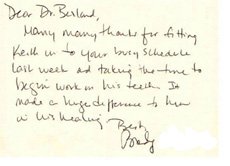 Dear Dr. Borland,
Many many thanks for fitting
Keith in to your busy schedule
last week and taking the time to
begin work on his teeth. It
made a huge difference to him
in his healing.
Best,